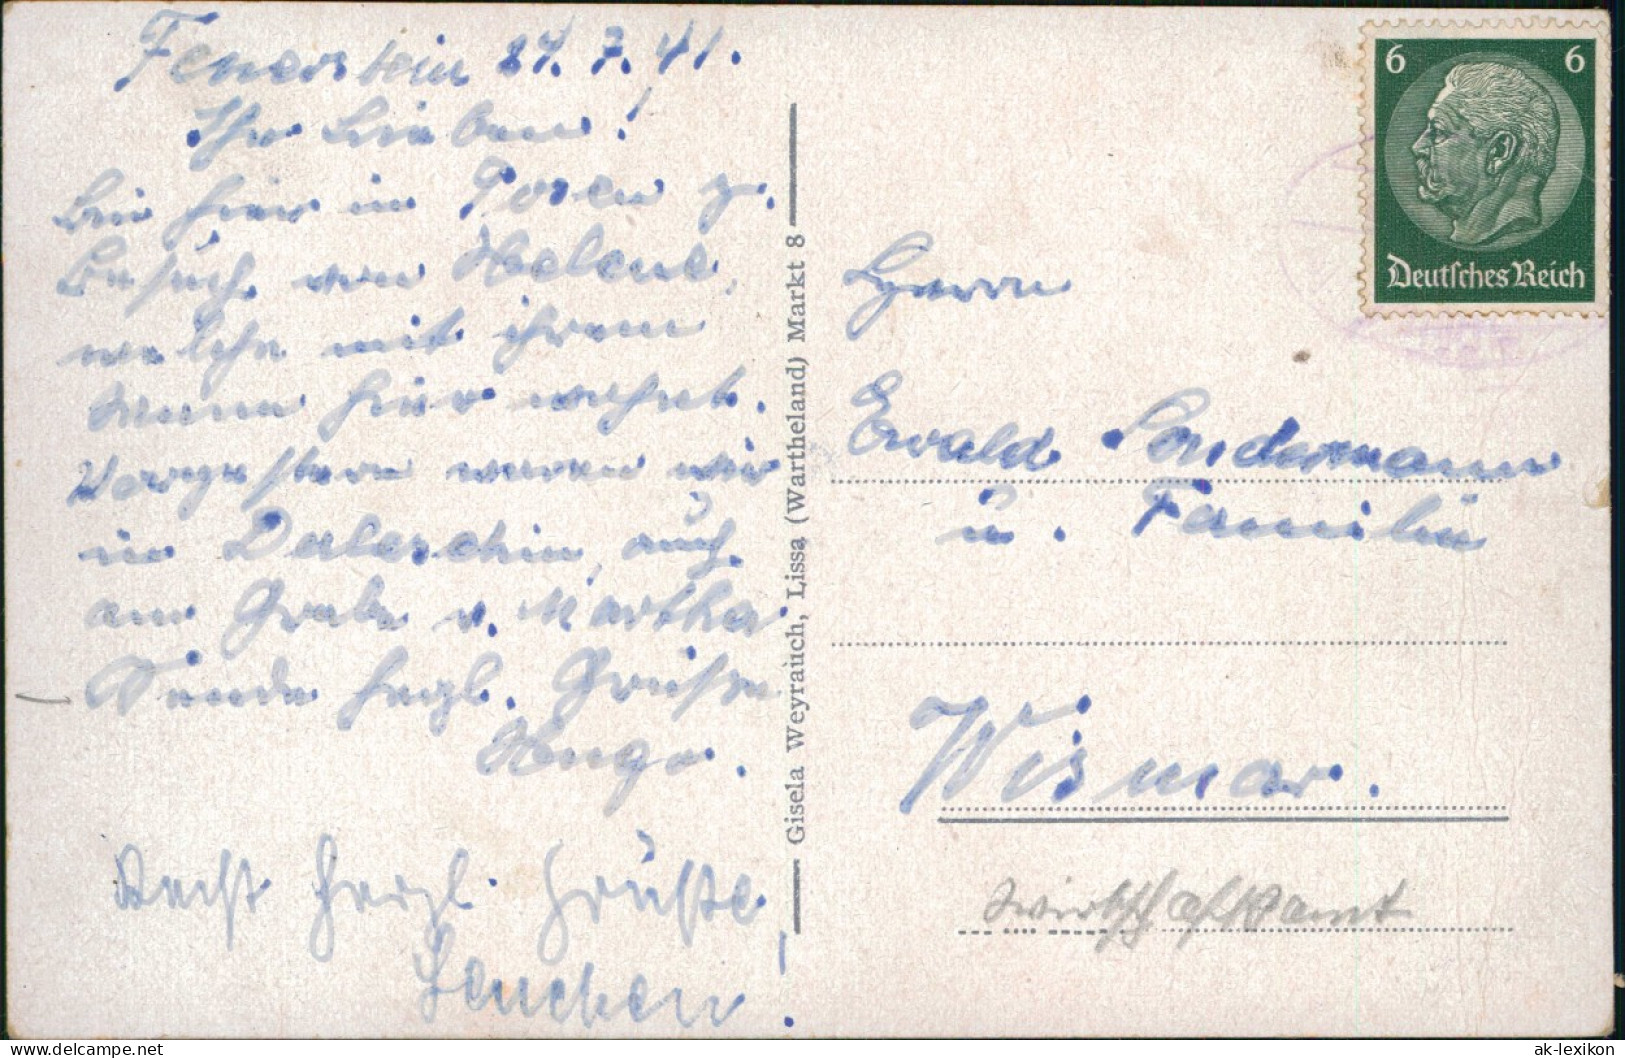 Feuerstein 24. 7. 41.
Ihr Lieben!
Bin hier in Posen z.
Besuch von Helene,
welche mit ihrem
Mann hier wohnt.
Vorgestern waren wir
in Daleschin, auch
am Grabe v. Martha
Sende herzl. Grüße
Hugo.
Recht herzl. Grüße
Lenchen
Gisela Weyrauch, Lissa (Wartheland) Markt 8
6 6
Deutsches Reich
Herrn
Ewald Sondermann
u. Familie
Wismar.
Wirtschaftsamt
www.delcampe.net
ak-lexikon